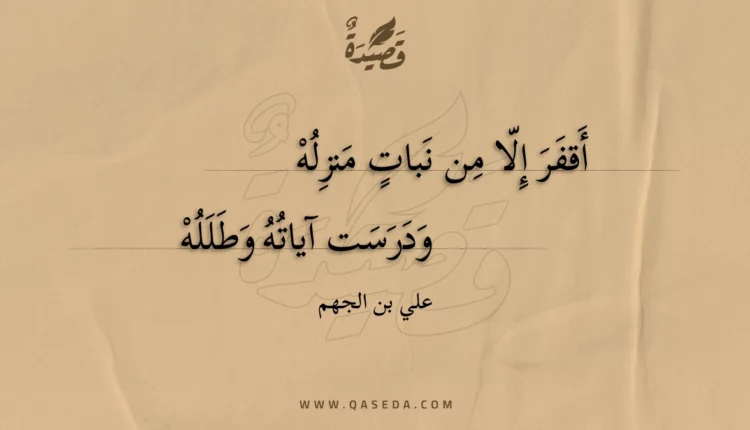 قَصِيدَةٌ
أَقفَرَ إِلّا مِن نَباتٍ مَنزِلُهْ
وَدَرَسَت آياتُهُ وَطَلَلُهْ
علي بن الجهم
WWW.QASEDA.COM